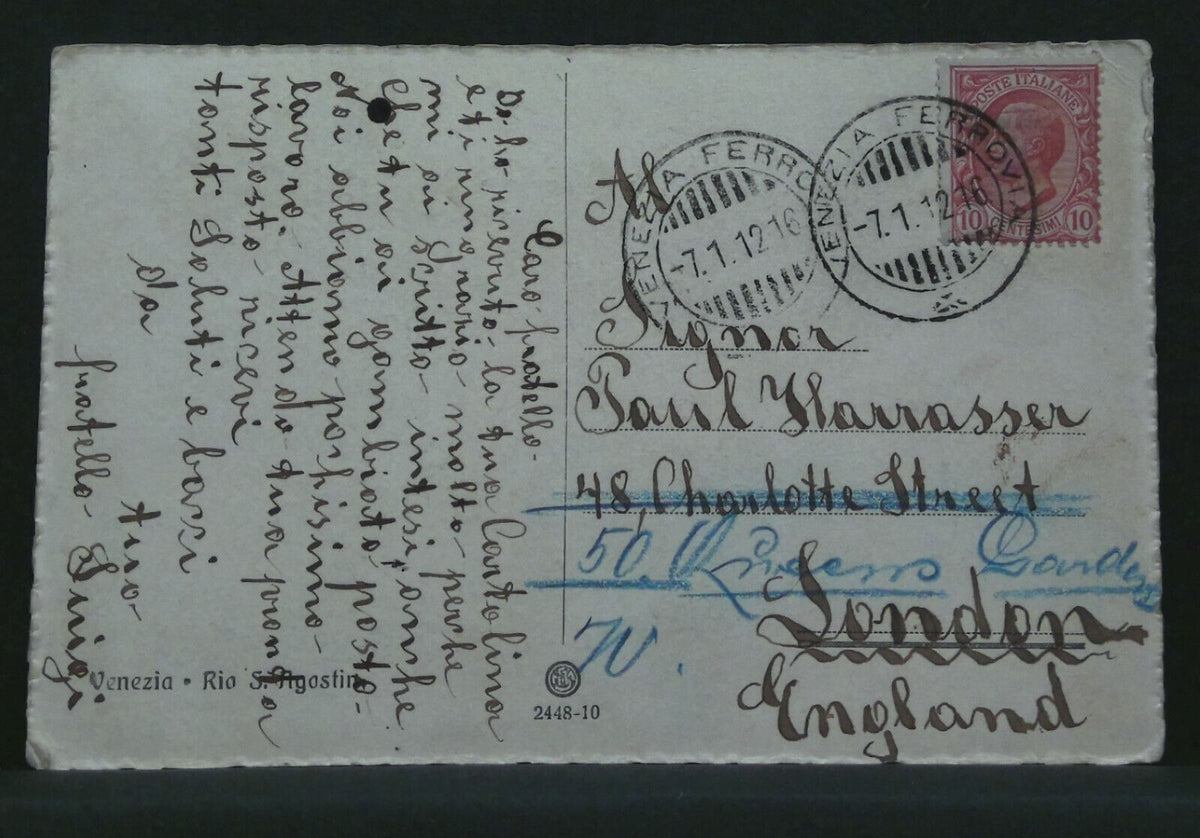 Caro fratello-
Do ho ricevuto- la tua Cartolina
e ti ringrazio- molto- perche
mi ai Scritto- intesi anche
Che tu ai gambiato posto-
Noi abbiamo pochisimo-
lavoro. Attendo tua pronta
risposta- ricevi
tanti Saluti e baci
da
tuo-
fratello- Luigi
Venezia • Rio S. Agostin
2448-10
POSTE ITALIANE
10 CENTESIMI 10
VENEZIA FERRO
-7.1.12 16
VENEZIA FERROVIA
-7.1.12 16
Al
Signor
Paul Harrasser
48, Charlotte Street
50. Queens Gardens
W.
London
England